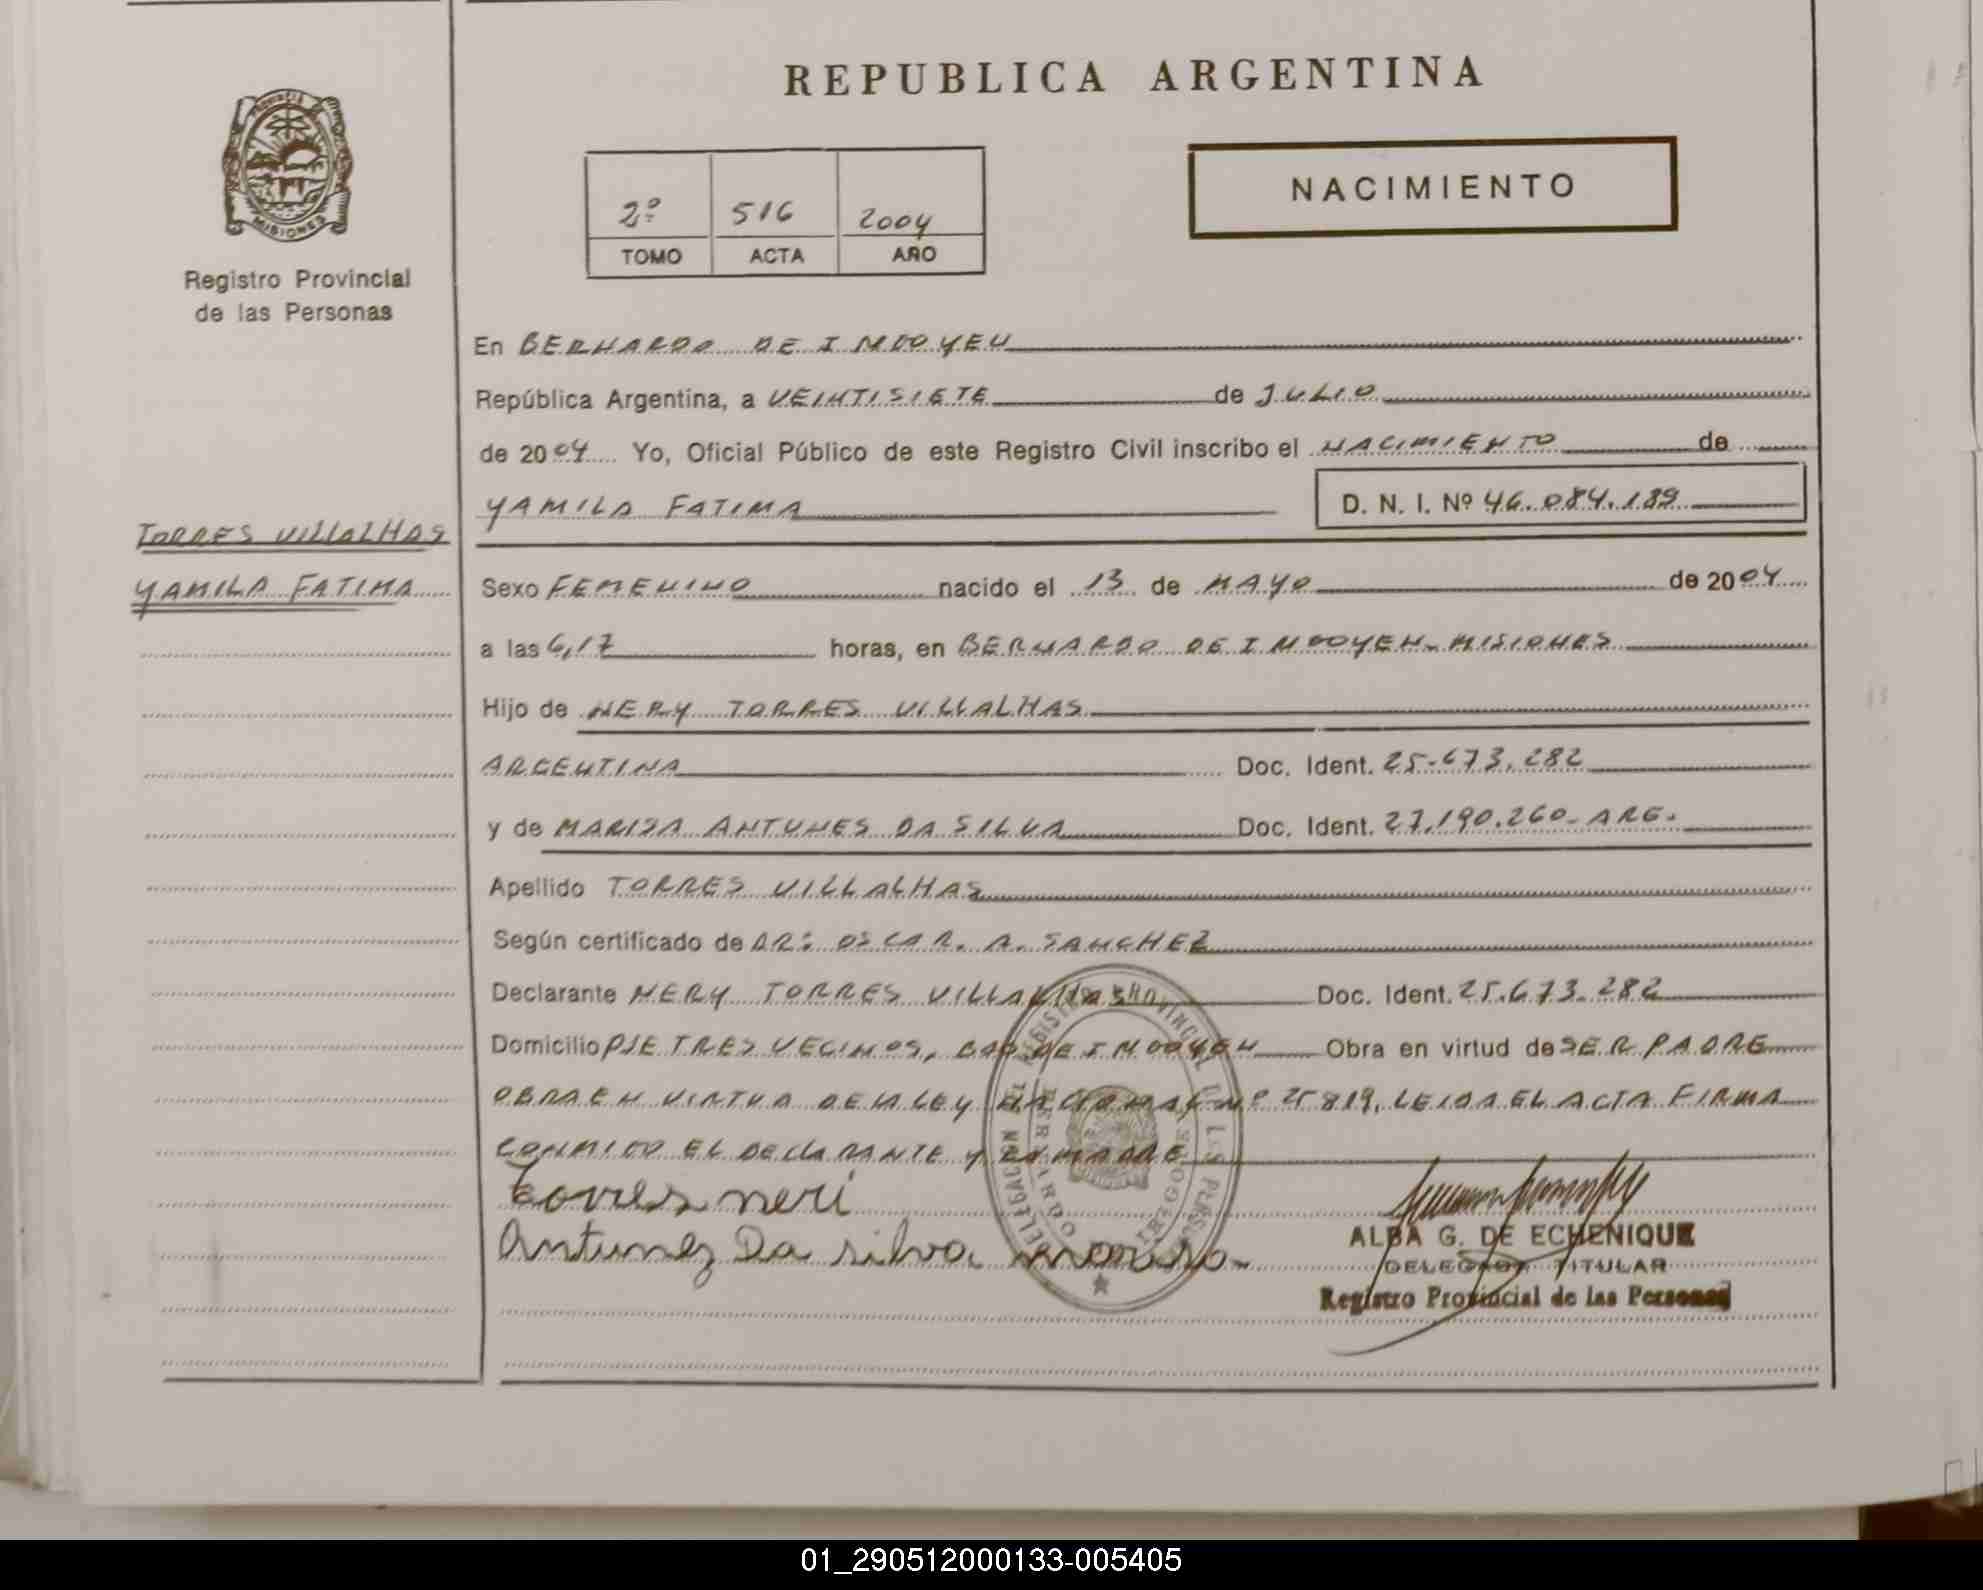 REPUBLICA ARGENTINA
PROVINCIA
MISIONES
Registro Provincial
de las Personas
NACIMIENTO
2º 516 2004
TOMO ACTA AÑO
En BERNARDO DE IRIGOYEN
República Argentina, a VEINTISIETE de JULIO
de 2004 Yo, Oficial Público de este Registro Civil inscribo el NACIMIENTO de
YAMILA FATIMA D. N. I. Nº 46.084.189
TORRES VILLALHAS
YAMILA FATIMA
Sexo FEMENINO nacido el 13 de MAYO de 2004
a las 6,17 horas, en BERNARDO DE IRIGOYEN - MISIONES
Hijo de NERY TORRES VILLALHAS
ARGENTINA Doc. Ident. 25.673.282
y de MARISA ANTUNES DA SILVA Doc. Ident. 27.190.260 - ARG.
Apellido TORRES VILLALHAS
Según certificado de DR: OSCAR. A. SANCHEZ
Declarante NERY TORRES VILLALHAS Doc. Ident. 25.673.282
Domicilio PJE TRES VECINOS, BDO DE IRIGOYEN Obra en virtud de SER PADRE
OBRA EN VIRTUD DE LA LEY NACIONAL Nº 25819, LEIDA EL ACTA FIRMA
CONMIGO EL DECLARANTE Y LA MADRE
torres neri
Antunez Da silva marisa
ALBA G. DE ECHENIQUE
DELEGADA TITULAR
Registro Provincial de las Personas
01_290512000133-005405